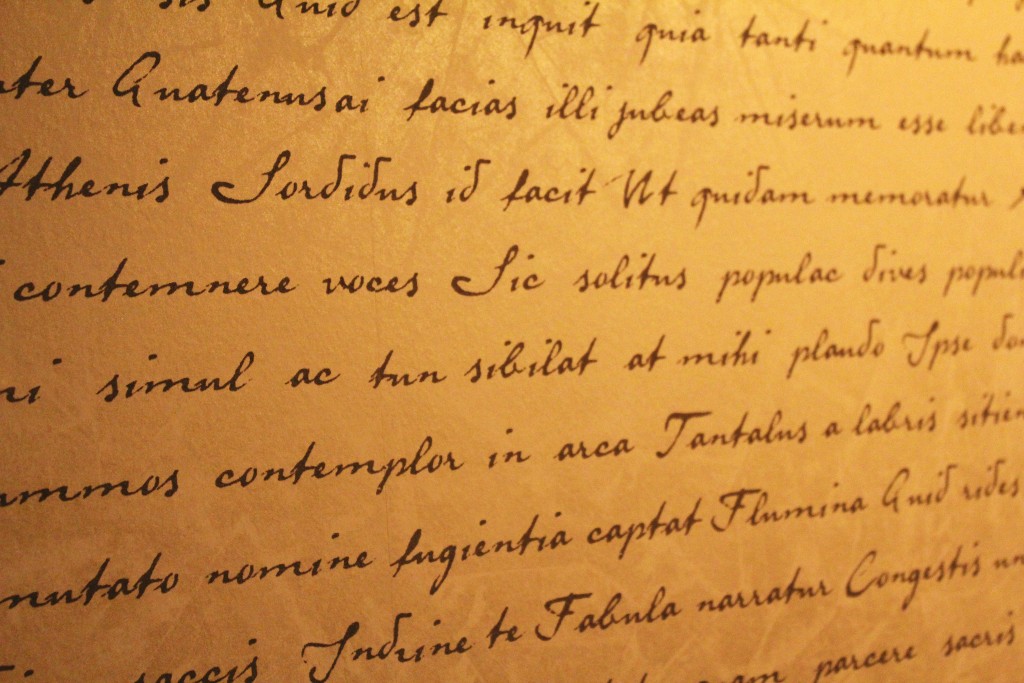 sis Quid est inquit quia tanti quantum
Quatenusai facias illi jubeas miserum esse
Athenis Sordidus id facit Ut quidam memoratur
contemnere voces Sic solitus populac dives
simul ac tun sibilat at mihi plaudo Ipse
contemplor in arca Tantalus a labris
nomine fugientia captat Flumina Quid rides
saccis Indrine te Fabula narratur Congestis
parcere sacris